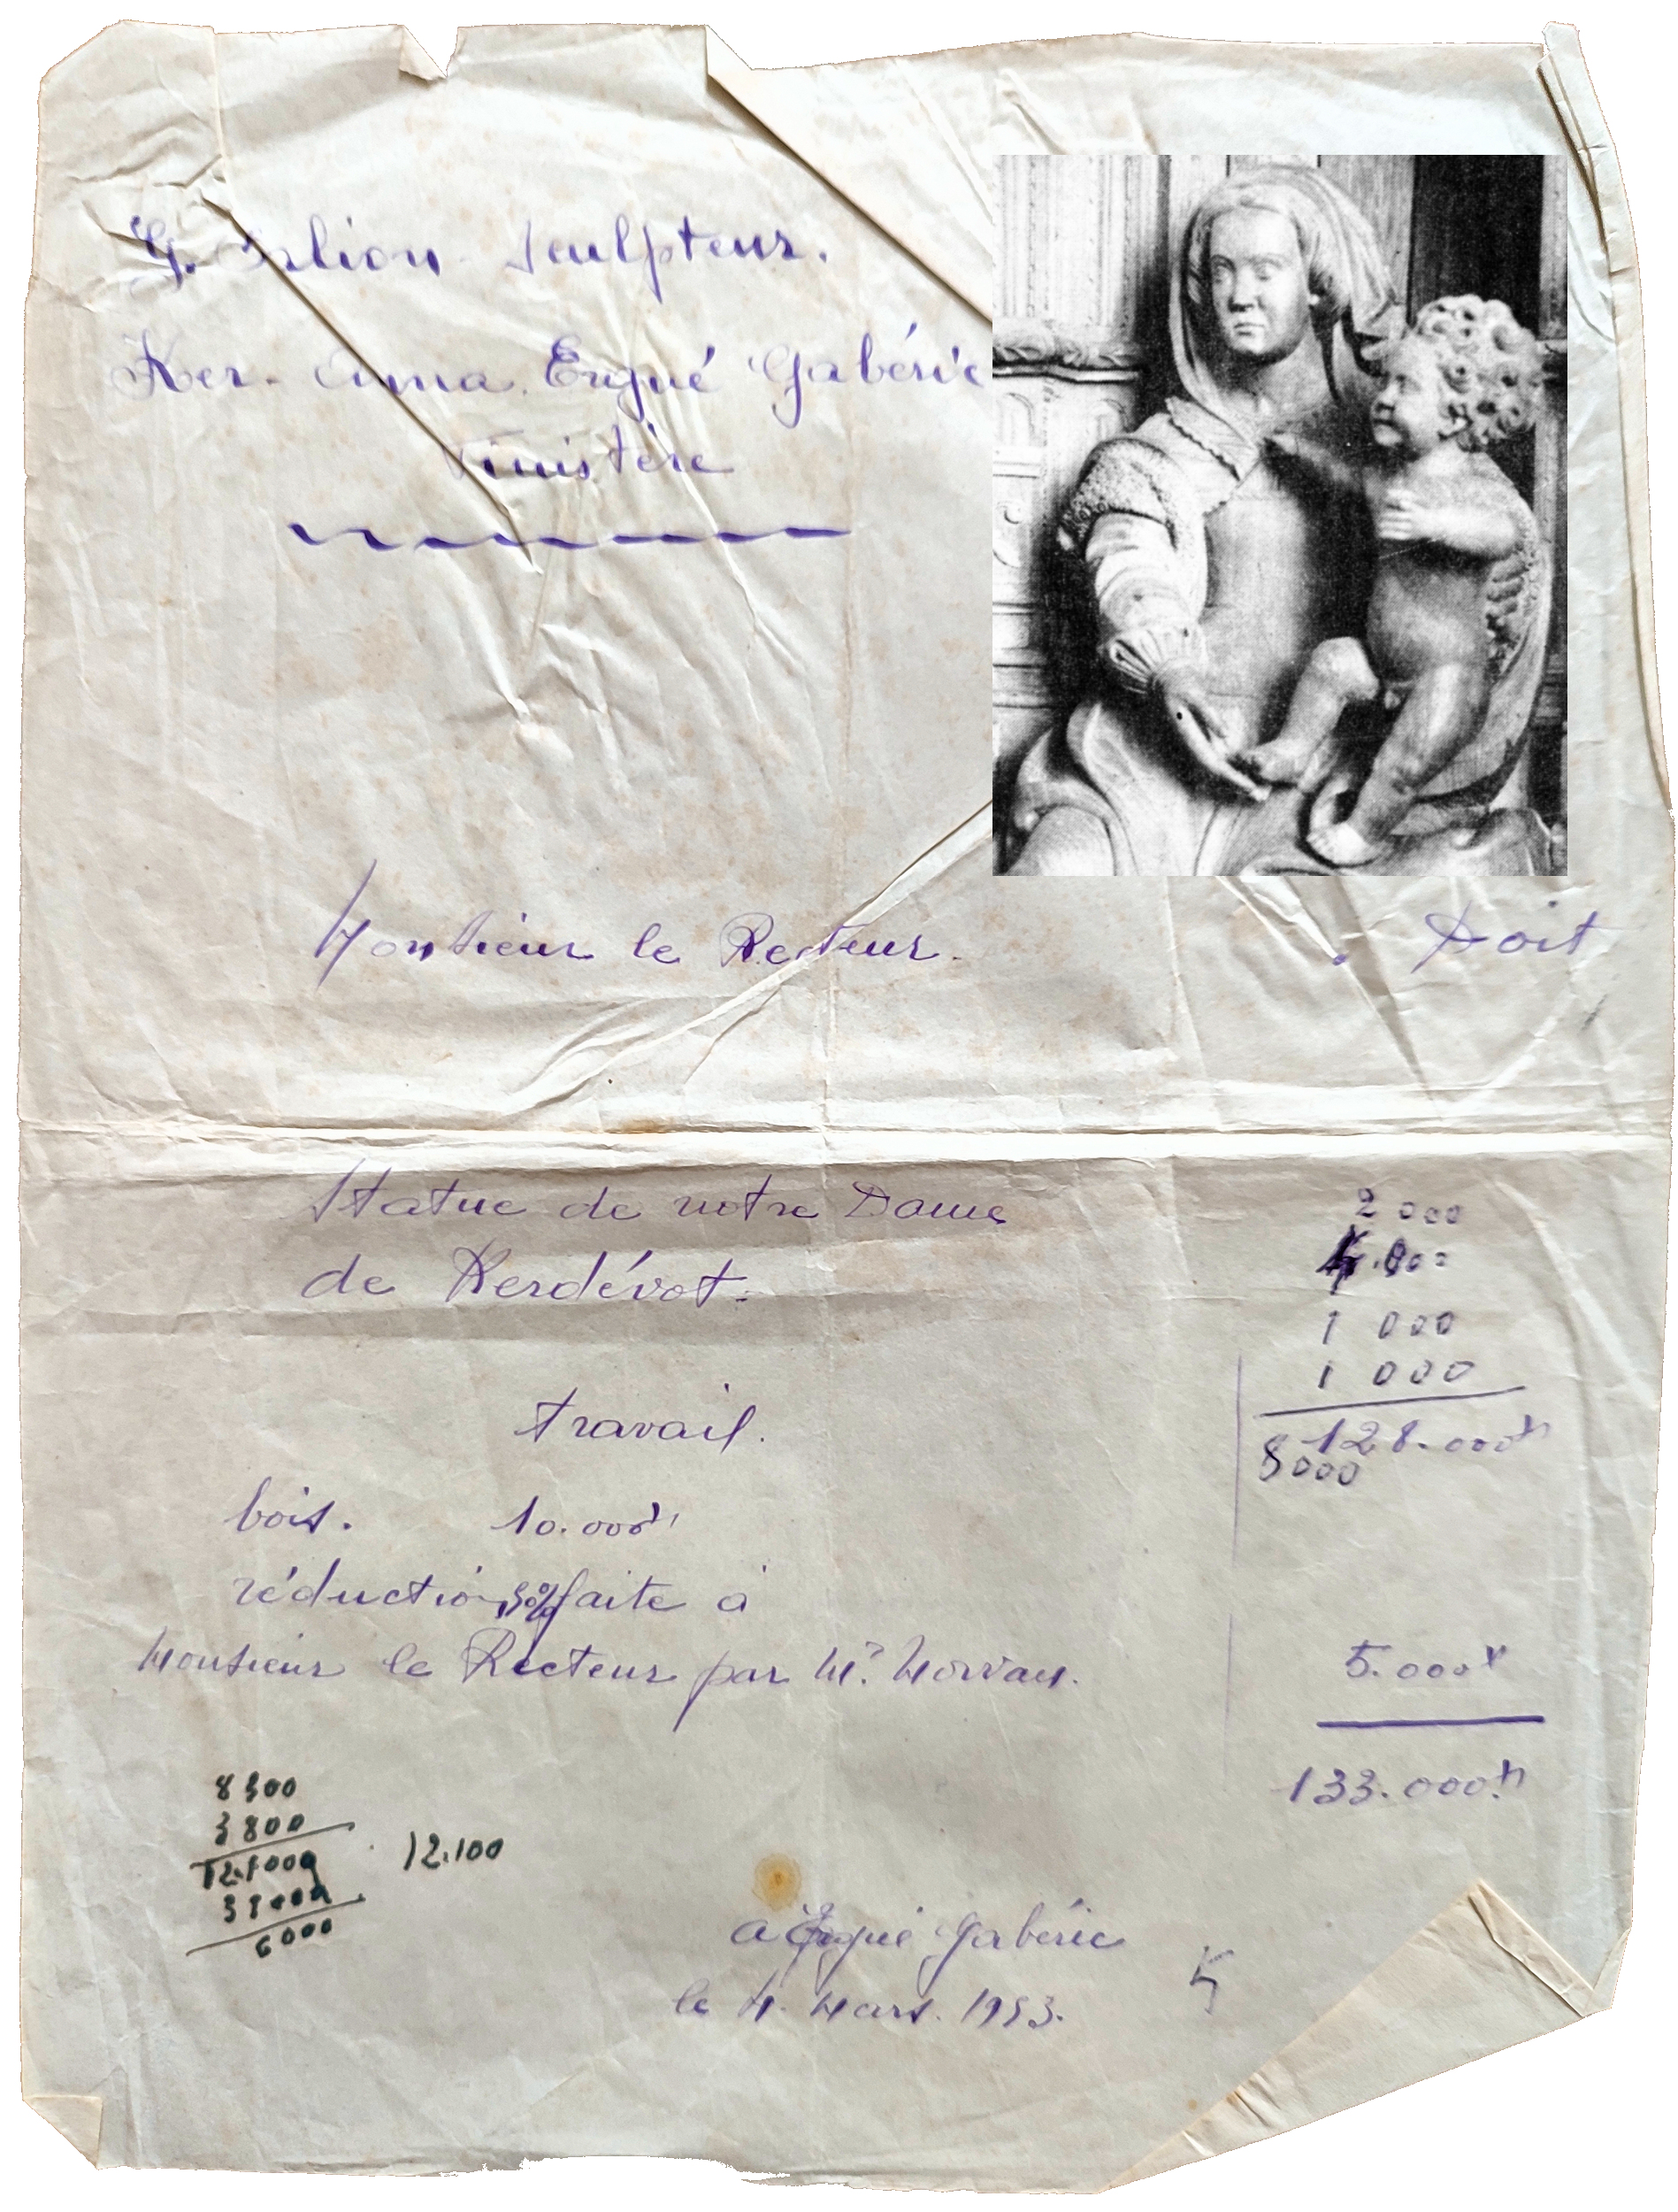 G. sculpteur.
Ker-Anna. Ergué Gabéric
Finistère
Monsieur le Recteur. Doit
Statue de notre Dame
de Kerdévot.
2 000
1 000
1 000
travail. 128.000
8000
bois. 10.000
réduction faite à
Monsieur le Recteur par Mr. Morvan. 5.000
133.000
8 300
3 800
12.100
6000
a Ergué Gabéric
le 4. Mars. 1953.
5